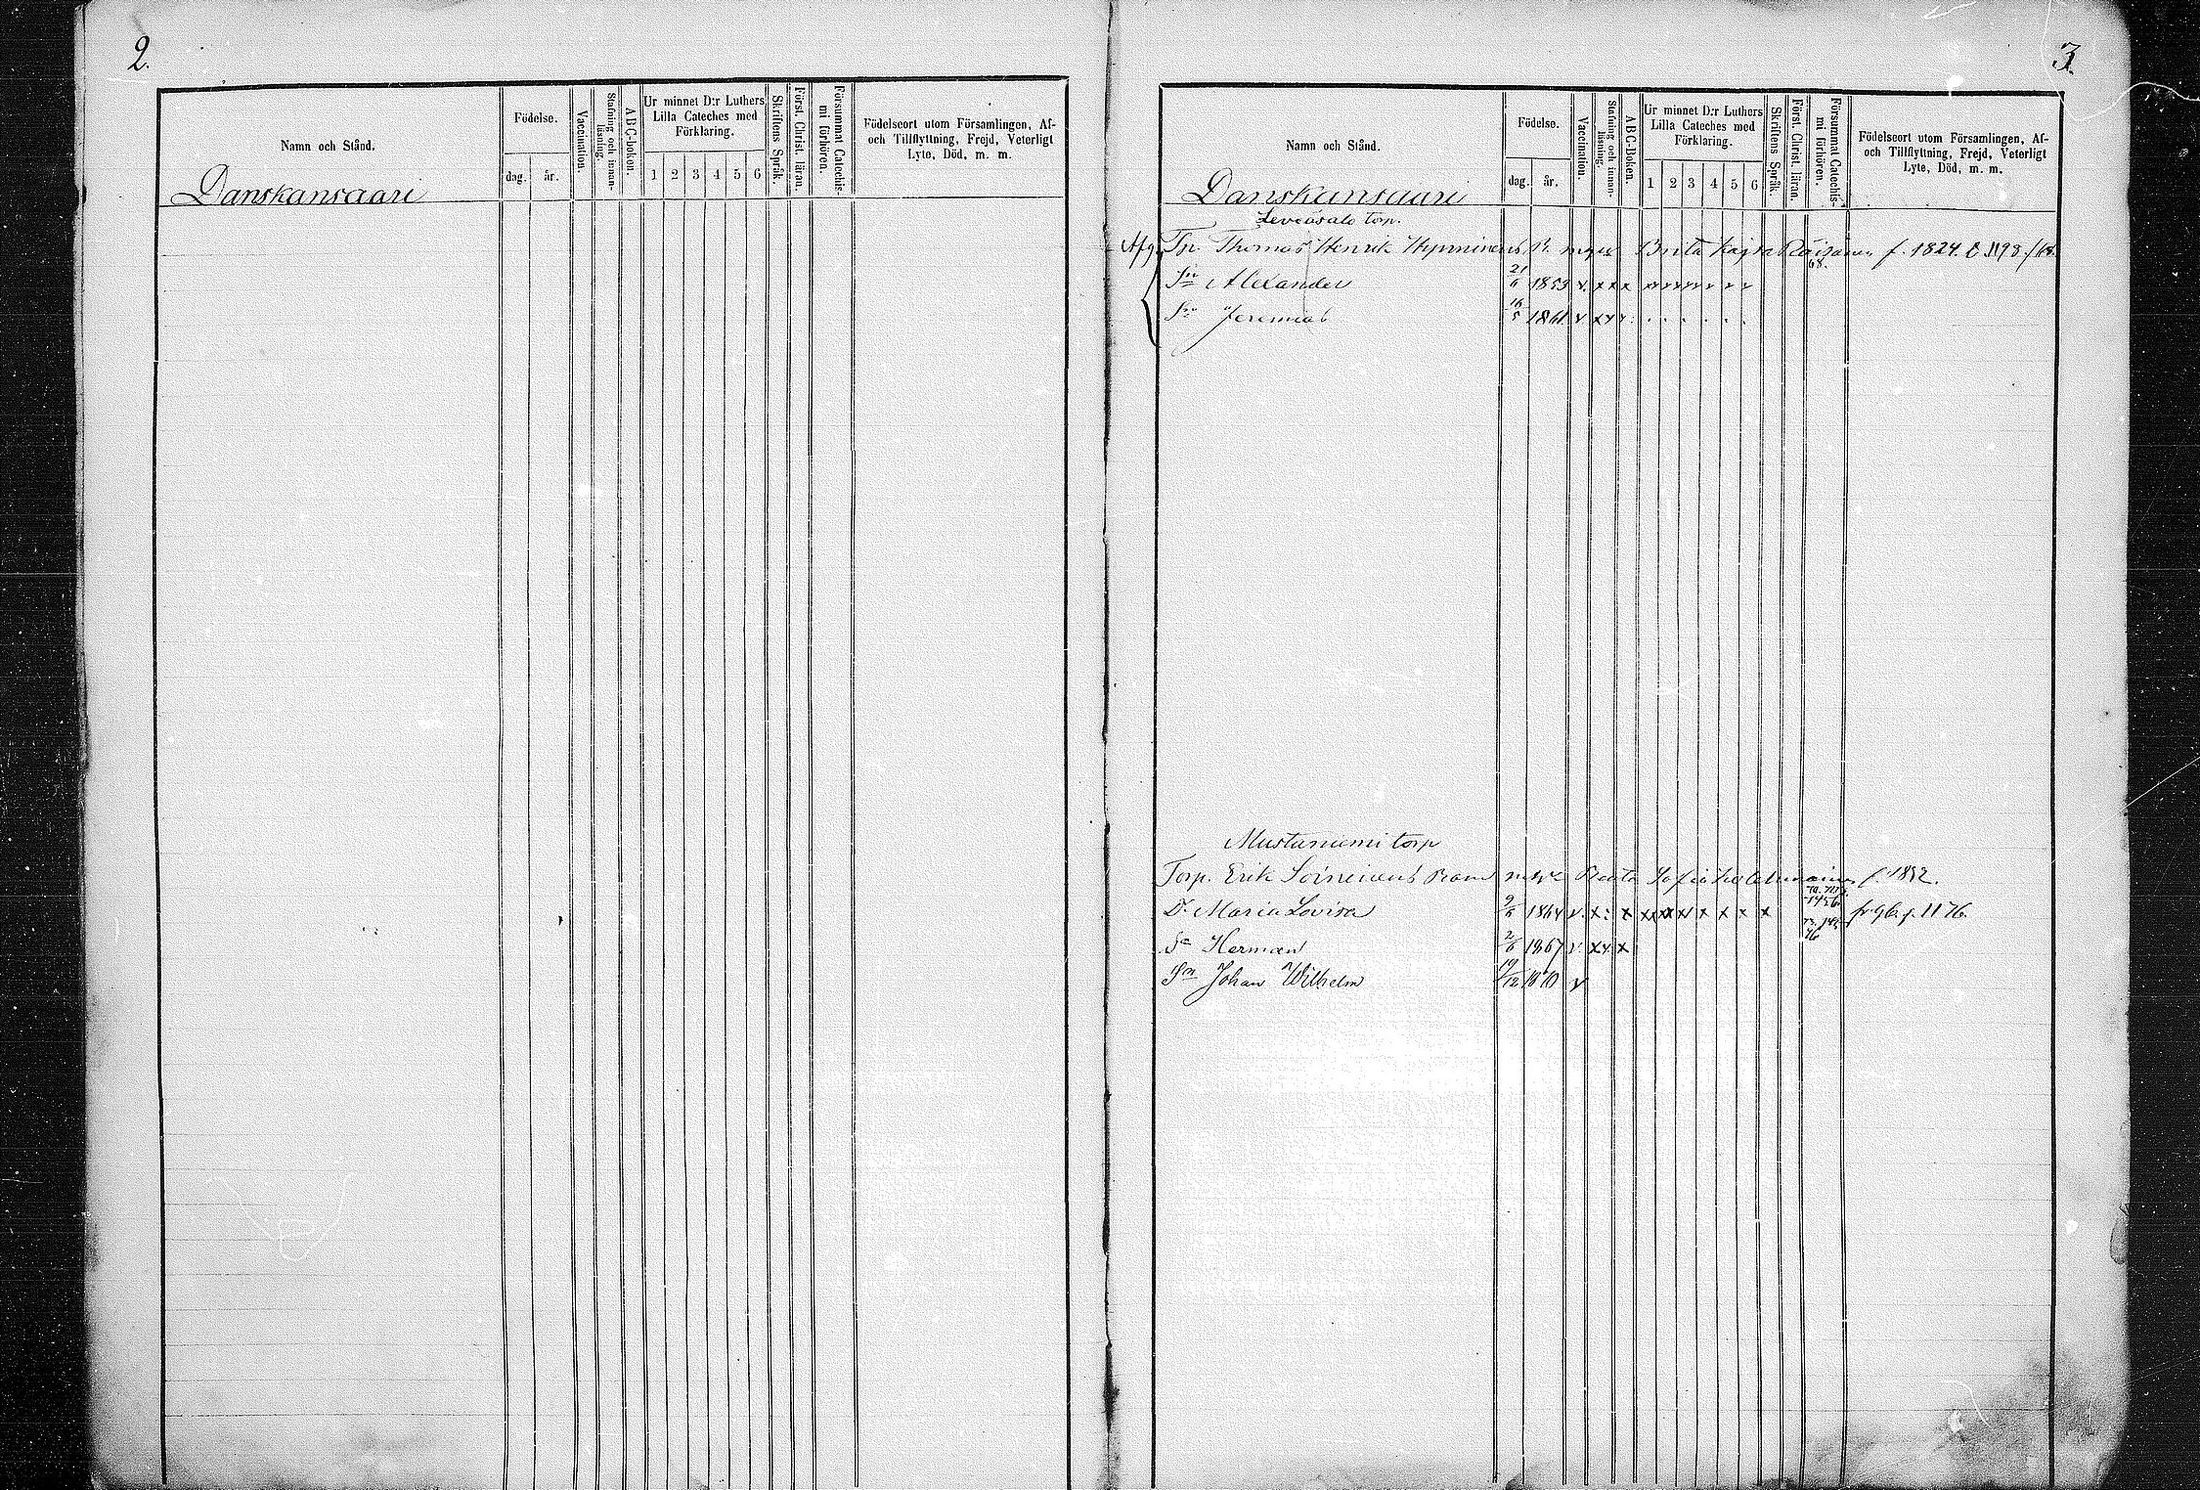 2.
Namn och Stånd.
Födelse.
dag.
år.
Vaccination.
Stafning och innan-
läsning.
A B C-boken.
Ur minnet D:r Luthers
Lilla Cateches med
Förklaring.
1 2 3 4 5 6
Skriftens Språk.
Först. Christ. läran.
Försummat Catechis-
mi förhören.
Födelseort utom Församlingen, Af-
och Tillflyttning, Frejd, Veterligt
Lyte, Död, m. m.
Danskansaari
3.
Namn och Stånd.
Födelse.
dag.
år.
Vaccination.
Stafning och innan-
läsning.
A B C-Boken.
Ur minnet D:r Luthers
Lilla Cateches med
Förklaring.
1 2 3 4 5 6
Skriftens Språk.
Först. Christ. läran.
Försummat Catechis-
mi förhören.
Födelseort utom Församlingen, Af-
och Tillflyttning, Frejd, Veterligt
Lyte, Död, m. m.
Danskansaari
torp.
Tp. Thomas Henrik Hynninens Brita Kajsa Räisänen f. 1824.
68.
Sn Alexander 21/6 1853 v. x x x
Sn Jeremias 16/5 1861 v x x
Mustaniemi torp
Torp. Erik Soininens Beata Sofia f. 1832.
Dr Maria Lovisa 9/5 1864 v. x x x x x x x x
Sn Herman 2/6 1867 v x x x
76
Sn Johan Wilhelm 19/12 1870 v